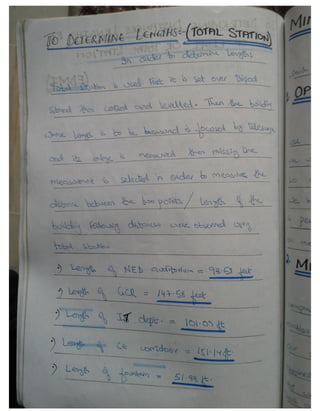 TO DETERMINE LENGTHS:- (TOTAL STATION)
In order to determine lengths
Total station is used first it is set over tripod
stand then and levelled. Then the building
whose length is to be measured is focused by telescope
and its edge is measured then missing line
measurement is selected in order to measure the
distance between the two points / length of the
building following distances were observed using
total station
→ Length of NED auditorium = 98.53 feet
→ Length of GCR = 147.58 feet
→ Length of IT dept. = 101.09 ft
→ Length of CE corridoor = 151.14 ft
→ Length of fountain = 51.98 ft.
MI
OP
MI